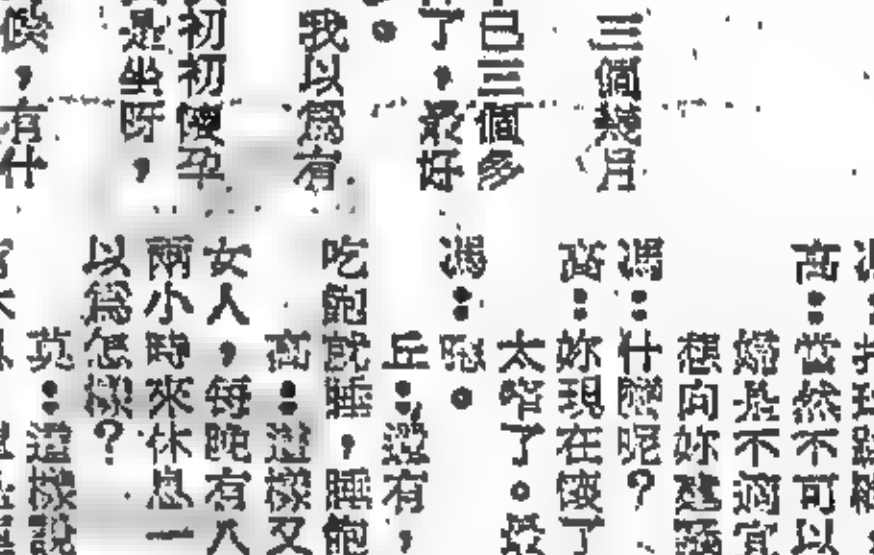 三個幾月
已三個多
了，最好
我以為有
初初懷孕
是坐呀，
候，有什
高：當然不可以
是不適宜
想向妳建議
馮：什麼呢？
高：妳現在懷了
太窄了。
馮：嗯。
丘：沒有，
吃飽就睡，睡飽
高：這樣又
女人，每晚有八
兩小時來休息一
以為怎樣？
莫：這樣說